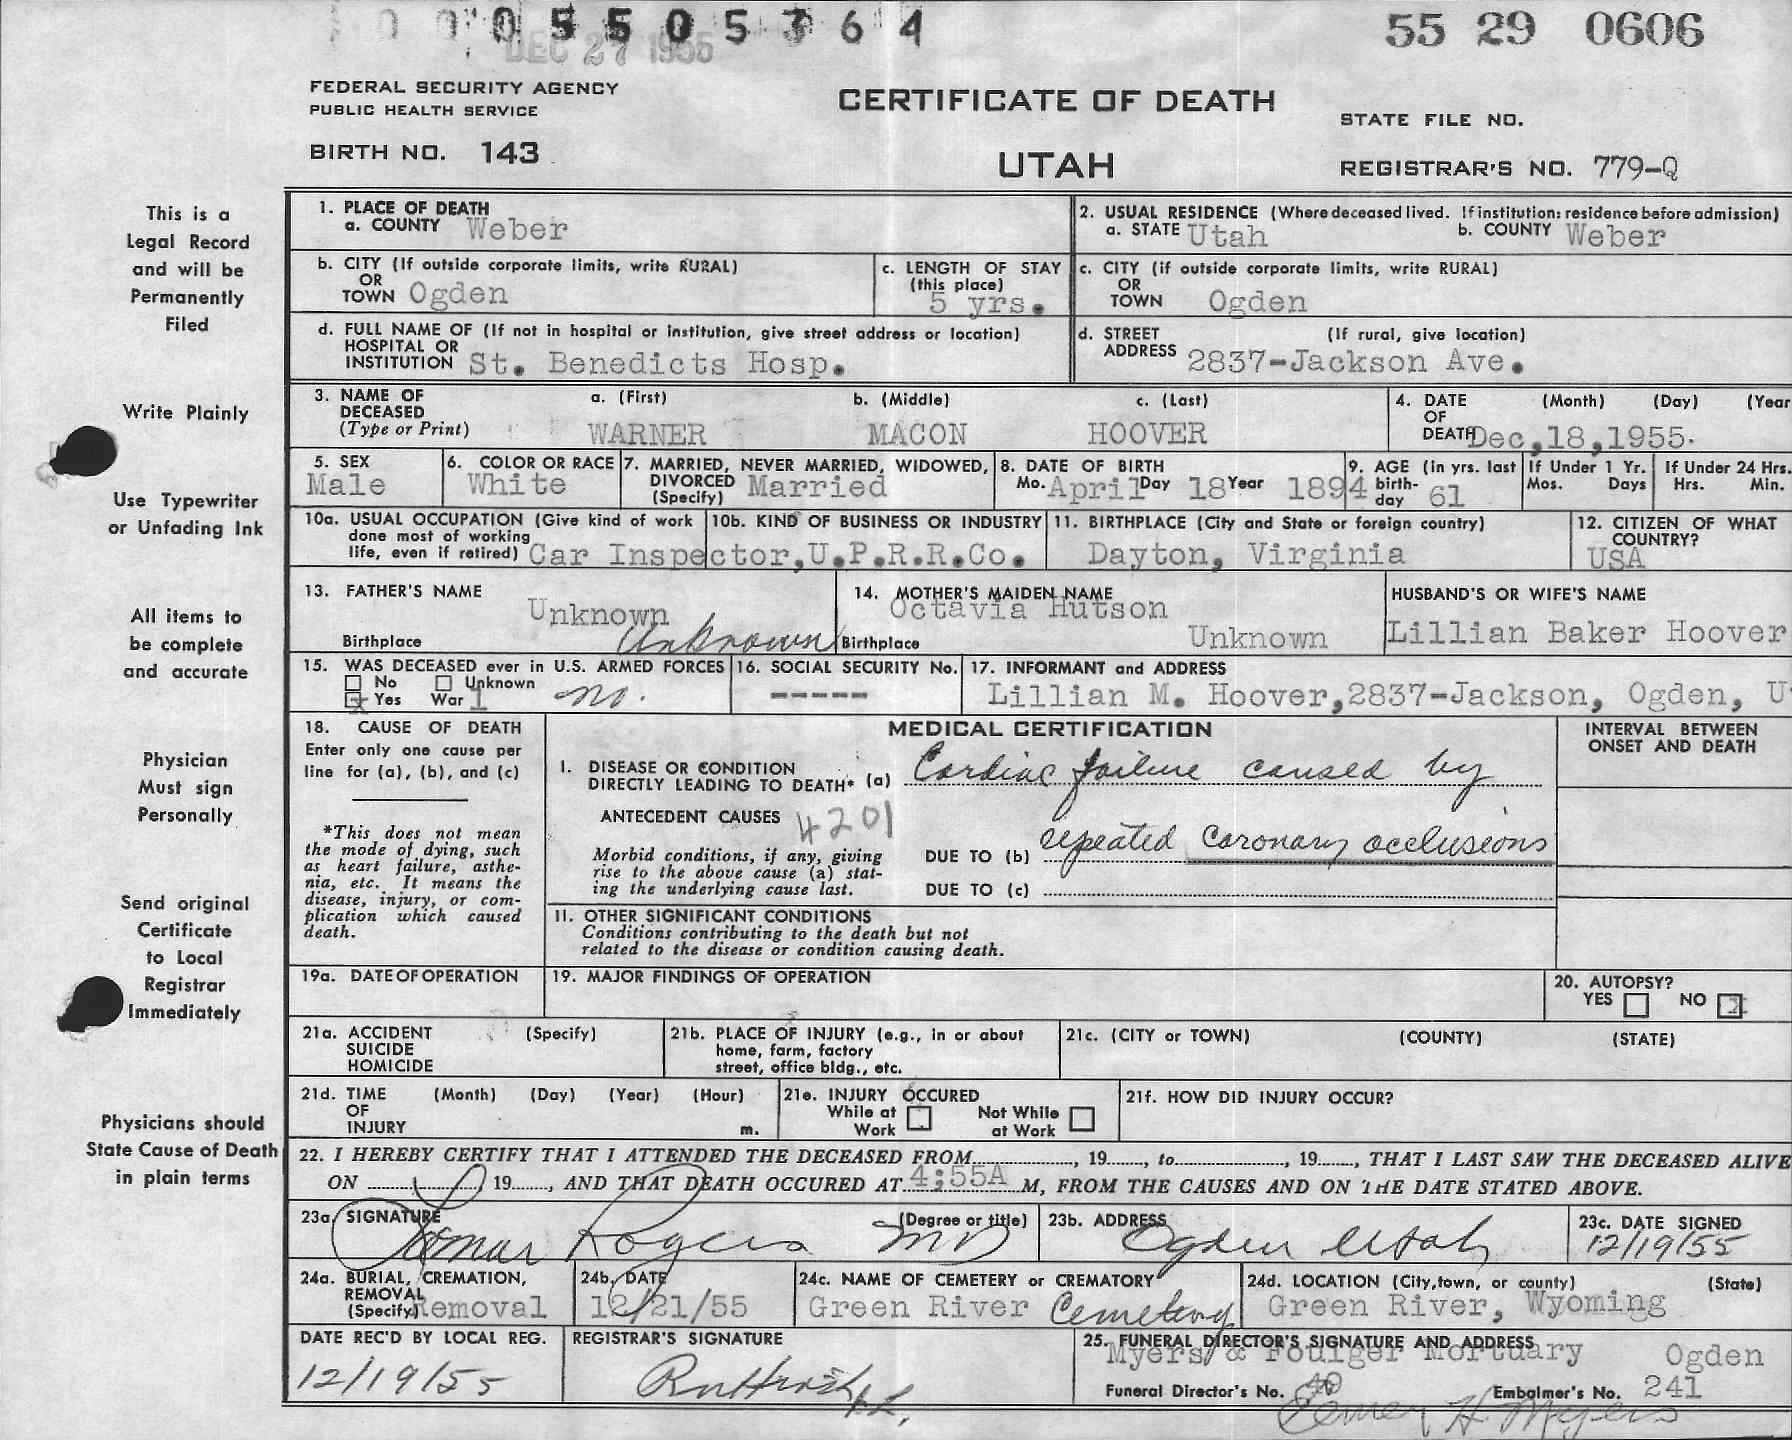 0 0 0 5 5 0 5 3 6 4
DEC 27 1955
55 29 0606
FEDERAL SECURITY AGENCY
PUBLIC HEALTH SERVICE
BIRTH NO. 143
CERTIFICATE OF DEATH
UTAH
STATE FILE NO.
REGISTRAR'S NO. 779-Q
This is a
Legal Record
and will be
Permanently
Filed
Write Plainly
Use Typewriter
or Unfading Ink
All items to
be complete
and accurate
Physician
Must sign
Personally
Send original
Certificate
to Local
Registrar
Immediately
Physicians should
State Cause of Death
in plain terms
1. PLACE OF DEATH
a. COUNTY Weber
2. USUAL RESIDENCE (Where deceased lived. If institution: residence before admission)
a. STATE Utah b. COUNTY Weber
b. CITY (If outside corporate limits, write RURAL)
OR
TOWN Ogden
c. LENGTH OF STAY
(this place)
5 yrs.
c. CITY (if outside corporate limits, write RURAL)
OR
TOWN Ogden
d. FULL NAME OF (If not in hospital or institution, give street address or location)
HOSPITAL OR
INSTITUTION St. Benedicts Hosp.
d. STREET (If rural, give location)
ADDRESS 2837-Jackson Ave.
3. NAME OF a. (First) b. (Middle) c. (Last)
DECEASED
(Type or Print) WARNER MACON HOOVER
4. DATE (Month) (Day) (Year
OF
DEATH Dec,18,1955.
5. SEX
Male
6. COLOR OR RACE
White
7. MARRIED, NEVER MARRIED, WIDOWED,
DIVORCED
(Specify) Married
8. DATE OF BIRTH
Mo. April Day 18 Year 1894
9. AGE (in yrs. last
birth-
day 61
If Under 1 Yr.
Mos. Days
If Under 24 Hrs.
Hrs. Min.
10a. USUAL OCCUPATION (Give kind of work
done most of working
life, even if retired) Car Inspector,
10b. KIND OF BUSINESS OR INDUSTRY
U.P.R.R.Co.
11. BIRTHPLACE (City and State or foreign country)
Dayton, Virginia
12. CITIZEN OF WHAT
COUNTRY?
USA
13. FATHER'S NAME
Unknown
Birthplace Unknown
14. MOTHER'S MAIDEN NAME
Octavia Hutson
Birthplace Unknown
HUSBAND'S OR WIFE'S NAME
Lillian Baker Hoover
15. WAS DECEASED ever in U.S. ARMED FORCES
No Unknown
x Yes War 1 no.
16. SOCIAL SECURITY No.
-----
17. INFORMANT and ADDRESS
Lillian M. Hoover,2837-Jackson, Ogden, U
18. CAUSE OF DEATH
Enter only one cause per
line for (a), (b), and (c)
*This does not mean
the mode of dying, such
as heart failure, asthe-
nia, etc. It means the
disease, injury, or com-
plication which caused
death.
MEDICAL CERTIFICATION
I. DISEASE OR CONDITION
DIRECTLY LEADING TO DEATH* (a) Cardiac failure caused by
ANTECEDENT CAUSES 4201
Morbid conditions, if any, giving
rise to the above cause (a) stat-
ing the underlying cause last.
DUE TO (b) repeated coronary occlusions
DUE TO (c)
INTERVAL BETWEEN
ONSET AND DEATH
II. OTHER SIGNIFICANT CONDITIONS
Conditions contributing to the death but not
related to the disease or condition causing death.
19a. DATE OF OPERATION
19. MAJOR FINDINGS OF OPERATION
20. AUTOPSY?
YES NO x
21a. ACCIDENT (Specify)
SUICIDE
HOMICIDE
21b. PLACE OF INJURY (e.g., in or about
home, farm, factory
street, office bldg., etc.
21c. (CITY or TOWN) (COUNTY) (STATE)
21d. TIME (Month) (Day) (Year) (Hour)
OF
INJURY m.
21e. INJURY OCCURED
While at Not While
Work at Work
21f. HOW DID INJURY OCCUR?
22. I HEREBY CERTIFY THAT I ATTENDED THE DECEASED FROM, 19, to, 19, THAT I LAST SAW THE DECEASED ALIVE
ON 19, AND THAT DEATH OCCURED AT 4:55A M, FROM THE CAUSES AND ON THE DATE STATED ABOVE.
23a. SIGNATURE (Degree or title)
Lamar Rogers MD
23b. ADDRESS
Ogden Utah
23c. DATE SIGNED
12/19/55
24a. BURIAL, CREMATION,
REMOVAL
(Specify) Removal
24b. DATE
12/21/55
24c. NAME OF CEMETERY or CREMATORY
Green River Cemetery
24d. LOCATION (City, town, or county) (State)
Green River, Wyoming
DATE REC'D BY LOCAL REG.
12/19/55
REGISTRAR'S SIGNATURE
25. FUNERAL DIRECTOR'S SIGNATURE AND ADDRESS
Myers & Foulger Mortuary Ogden
Funeral Director's No. 40 Embalmer's No. 241
Elmer H Myers